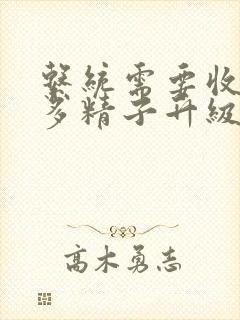 系統需要收
多精子升級
高木勇志